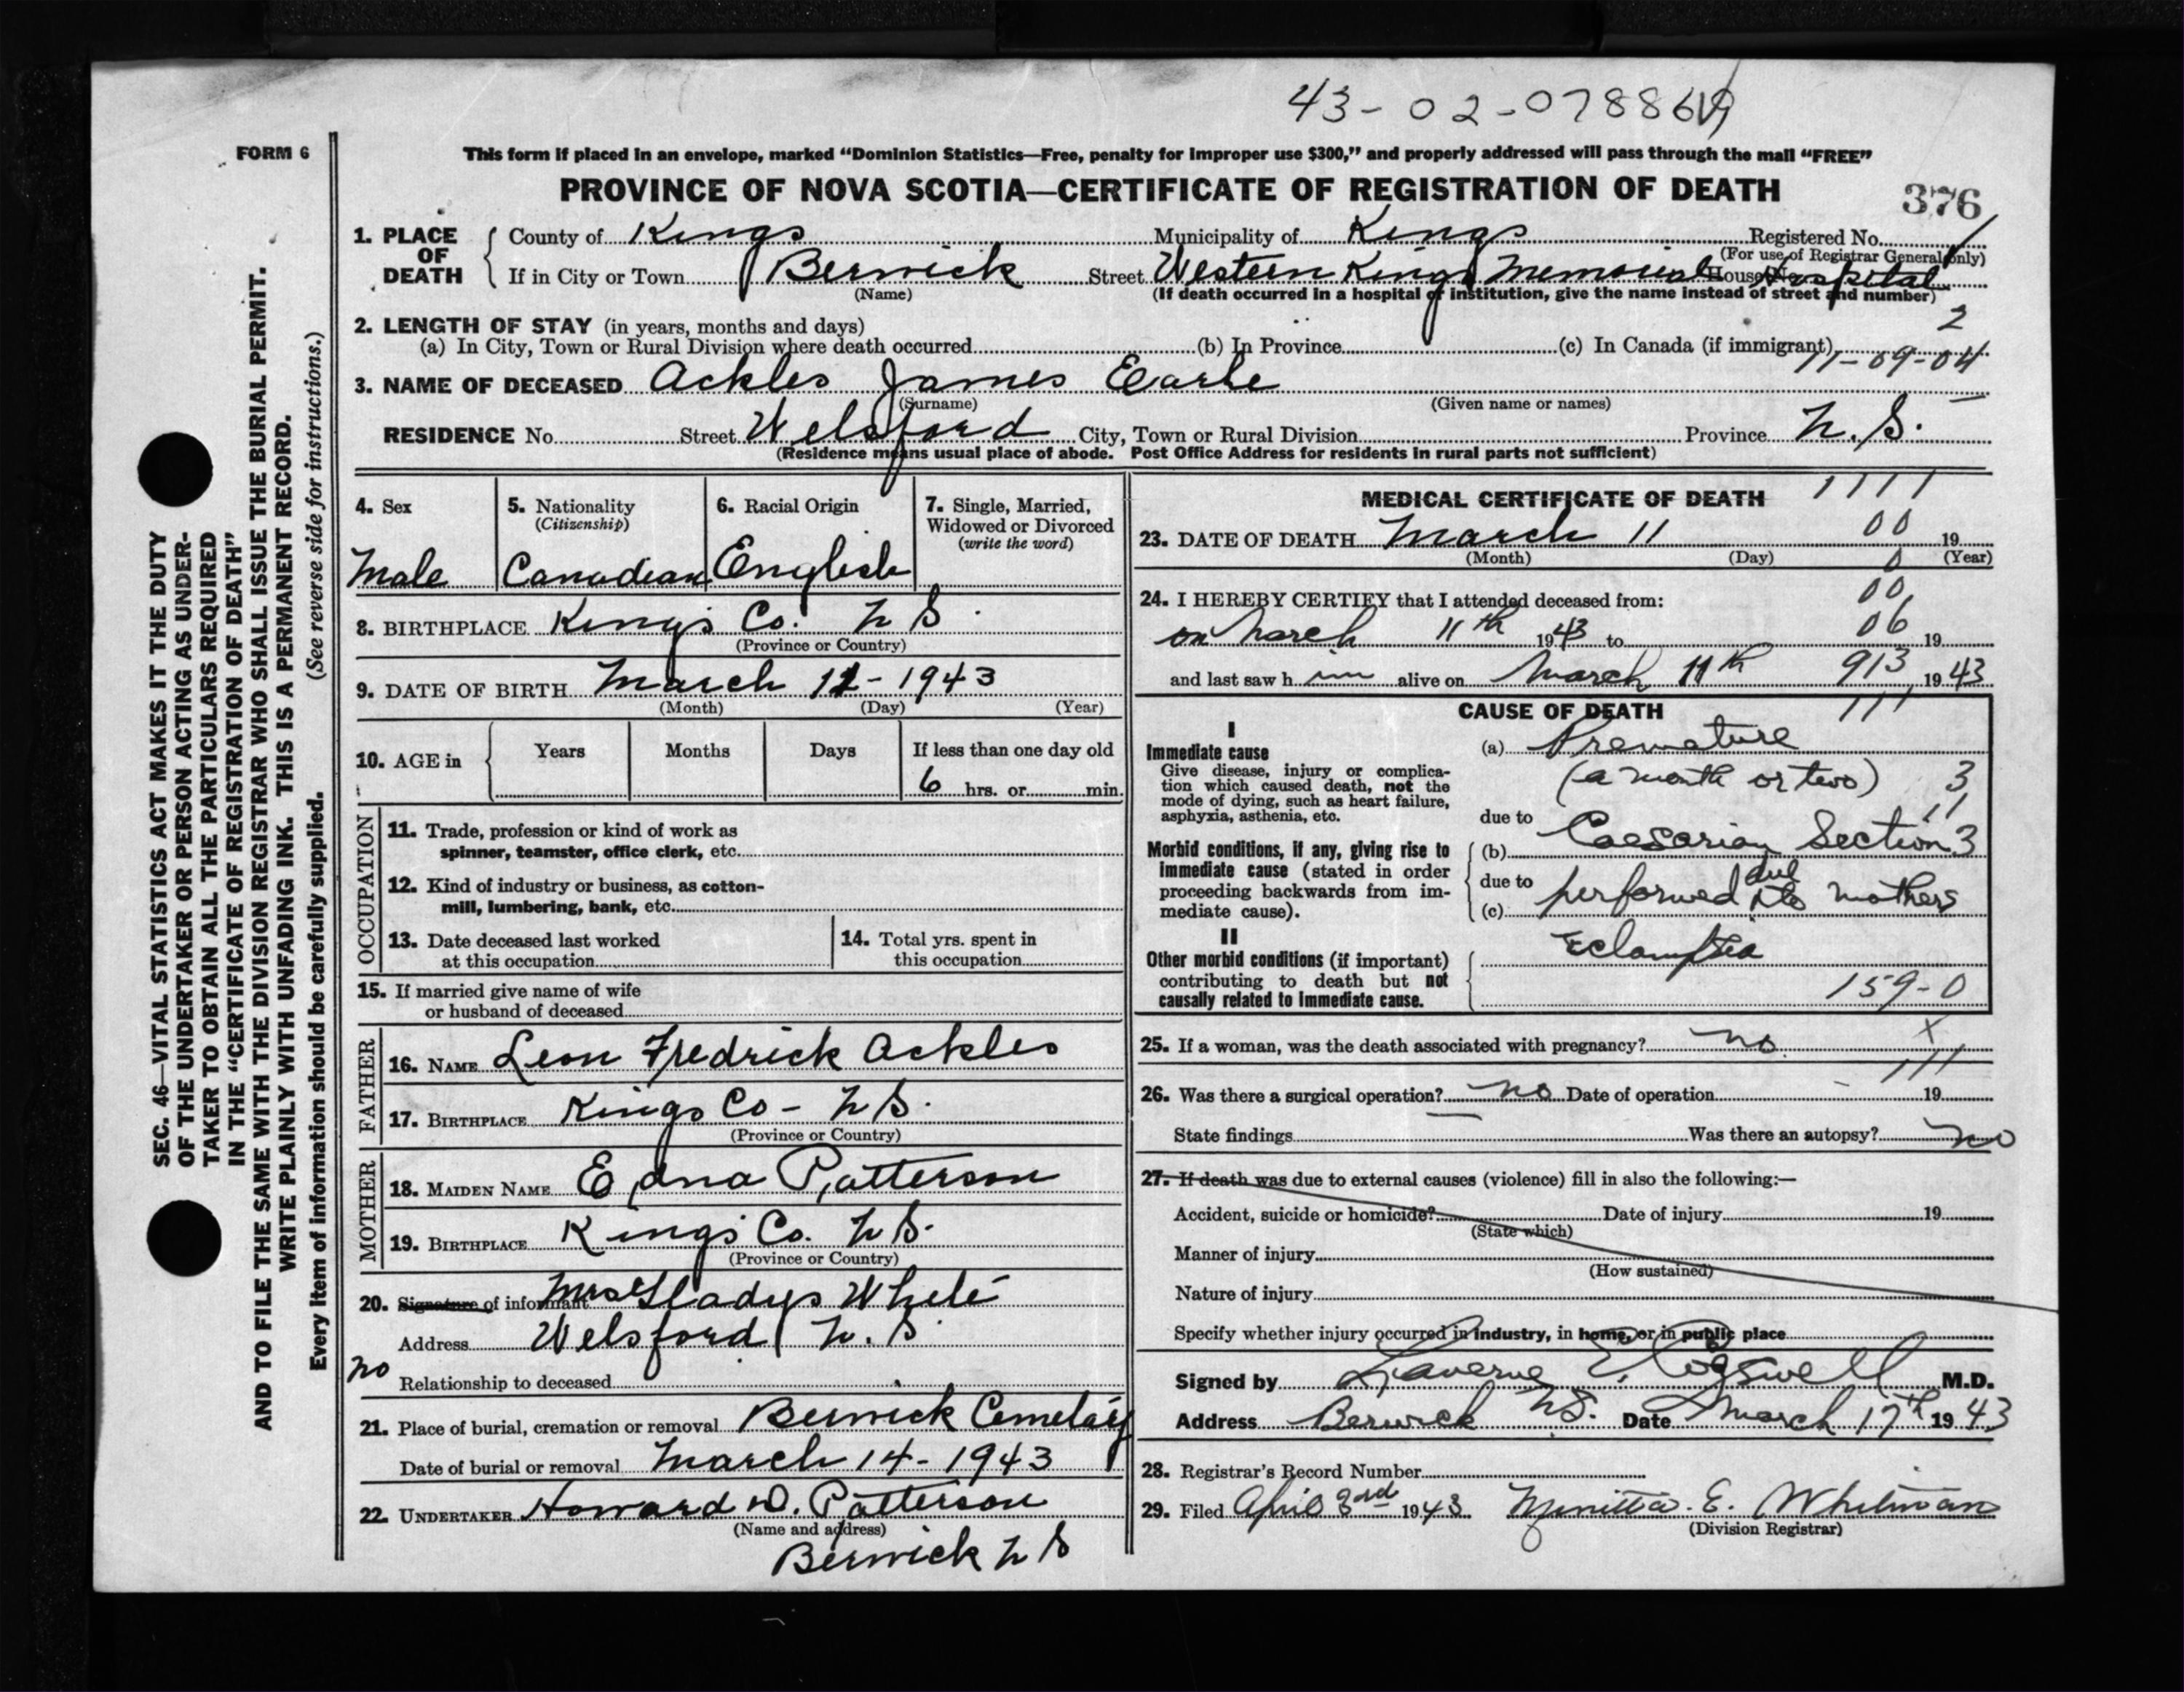 43-02-078869
FORM 6
This form if placed in an envelope, marked “Dominion Statistics—Free, penalty for improper use $300,” and properly addressed will pass through the mail “FREE”
PROVINCE OF NOVA SCOTIA—CERTIFICATE OF REGISTRATION OF DEATH
376
1. PLACE OF DEATH
County of Kings Municipality of Kings Registered No.
(For use of Registrar General only)
If in City or Town Berwick Street Western Kings Memorial House No. Hospital
(Name) (If death occurred in a hospital or institution, give the name instead of street and number)
2. LENGTH OF STAY (in years, months and days) 2
(a) In City, Town or Rural Division where death occurred (b) In Province (c) In Canada (if immigrant)
11-09-04
3. NAME OF DECEASED Ackles James Earle
(Surname) (Given name or names)
RESIDENCE No. Street Welsford City, Town or Rural Division Province N.S.
(Residence means usual place of abode. Post Office Address for residents in rural parts not sufficient)
4. Sex
Male
5. Nationality
(Citizenship)
Canadian
6. Racial Origin
English
7. Single, Married, Widowed or Divorced
(write the word)
8. BIRTHPLACE Kings Co. N S
(Province or Country)
9. DATE OF BIRTH March 11 - 1943
(Month) (Day) (Year)
10. AGE in Years Months Days If less than one day old
6 hrs. or min.
OCCUPATION
11. Trade, profession or kind of work as
spinner, teamster, office clerk, etc.
12. Kind of industry or business, as cotton-
mill, lumbering, bank, etc.
13. Date deceased last worked
at this occupation
14. Total yrs. spent in
this occupation
15. If married give name of wife
or husband of deceased
FATHER
16. NAME Leon Fredrick Ackles
17. BIRTHPLACE Kings Co - N S.
(Province or Country)
MOTHER
18. MAIDEN NAME Edna Patterson
19. BIRTHPLACE Kings Co. N S.
(Province or Country)
20. Signature of informant Mrs Gladys White
Address Welsford N. S
no
Relationship to deceased
21. Place of burial, cremation or removal Berwick Cemetary
Date of burial or removal March 14 - 1943
22. UNDERTAKER Howard D. Patterson
(Name and address)
Berwick N S
MEDICAL CERTIFICATE OF DEATH 1111
23. DATE OF DEATH March 11 00 19
(Month) (Day) (Year)
0
24. I HEREBY CERTIFY that I attended deceased from: 00
on March 11th 1943 to 06 19
and last saw h im alive on March 11th 913 1943
CAUSE OF DEATH 111
I
Immediate cause
Give disease, injury or complica-
tion which caused death, not the
mode of dying, such as heart failure,
asphyxia, asthenia, etc.
(a) Premature
(a month or two) 3
due to 11
Morbid conditions, if any, giving rise to
immediate cause (stated in order
proceeding backwards from im-
mediate cause).
(b) Caesarian Section 3
due to
(c) performed due to mothers
Eclampsia
II
Other morbid conditions (if important)
contributing to death but not
causally related to immediate cause.
159-0
25. If a woman, was the death associated with pregnancy? no X
111
26. Was there a surgical operation? no Date of operation 19
State findings Was there an autopsy? no
27. If death was due to external causes (violence) fill in also the following:—
Accident, suicide or homicide? Date of injury 19
(State which)
Manner of injury
(How sustained)
Nature of injury
Specify whether injury occurred in industry, in home, or in public place
Signed by Laverne E. Cogswell M.D.
Address Berwick N.S. Date March 17th 1943
28. Registrar’s Record Number
29. Filed April 3rd 1943 E. Whitman
(Division Registrar)
SEC. 46—VITAL STATISTICS ACT MAKES IT THE DUTY
OF THE UNDERTAKER OR PERSON ACTING AS UNDER-
TAKER TO OBTAIN ALL THE PARTICULARS REQUIRED
IN THE “CERTIFICATE OF REGISTRATION OF DEATH”
AND TO FILE THE SAME WITH THE DIVISION REGISTRAR WHO SHALL ISSUE THE BURIAL PERMIT.
WRITE PLAINLY WITH UNFADING INK. THIS IS A PERMANENT RECORD.
Every item of information should be carefully supplied. (See reverse side for instructions.)